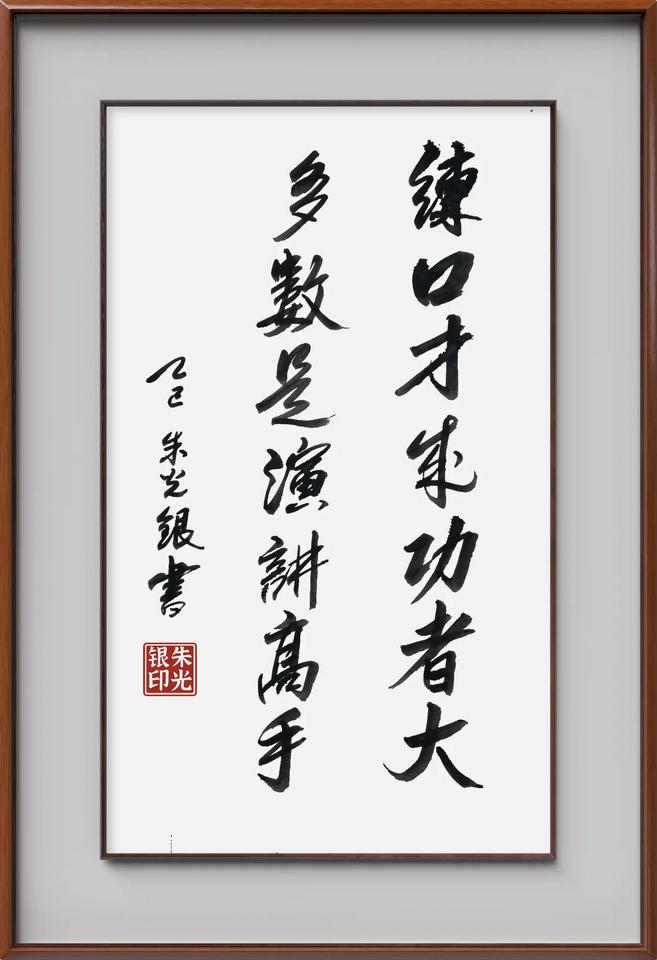 練口才成功者大
多數是演讲髙手
乙巳 朱光銀書
朱光
银印